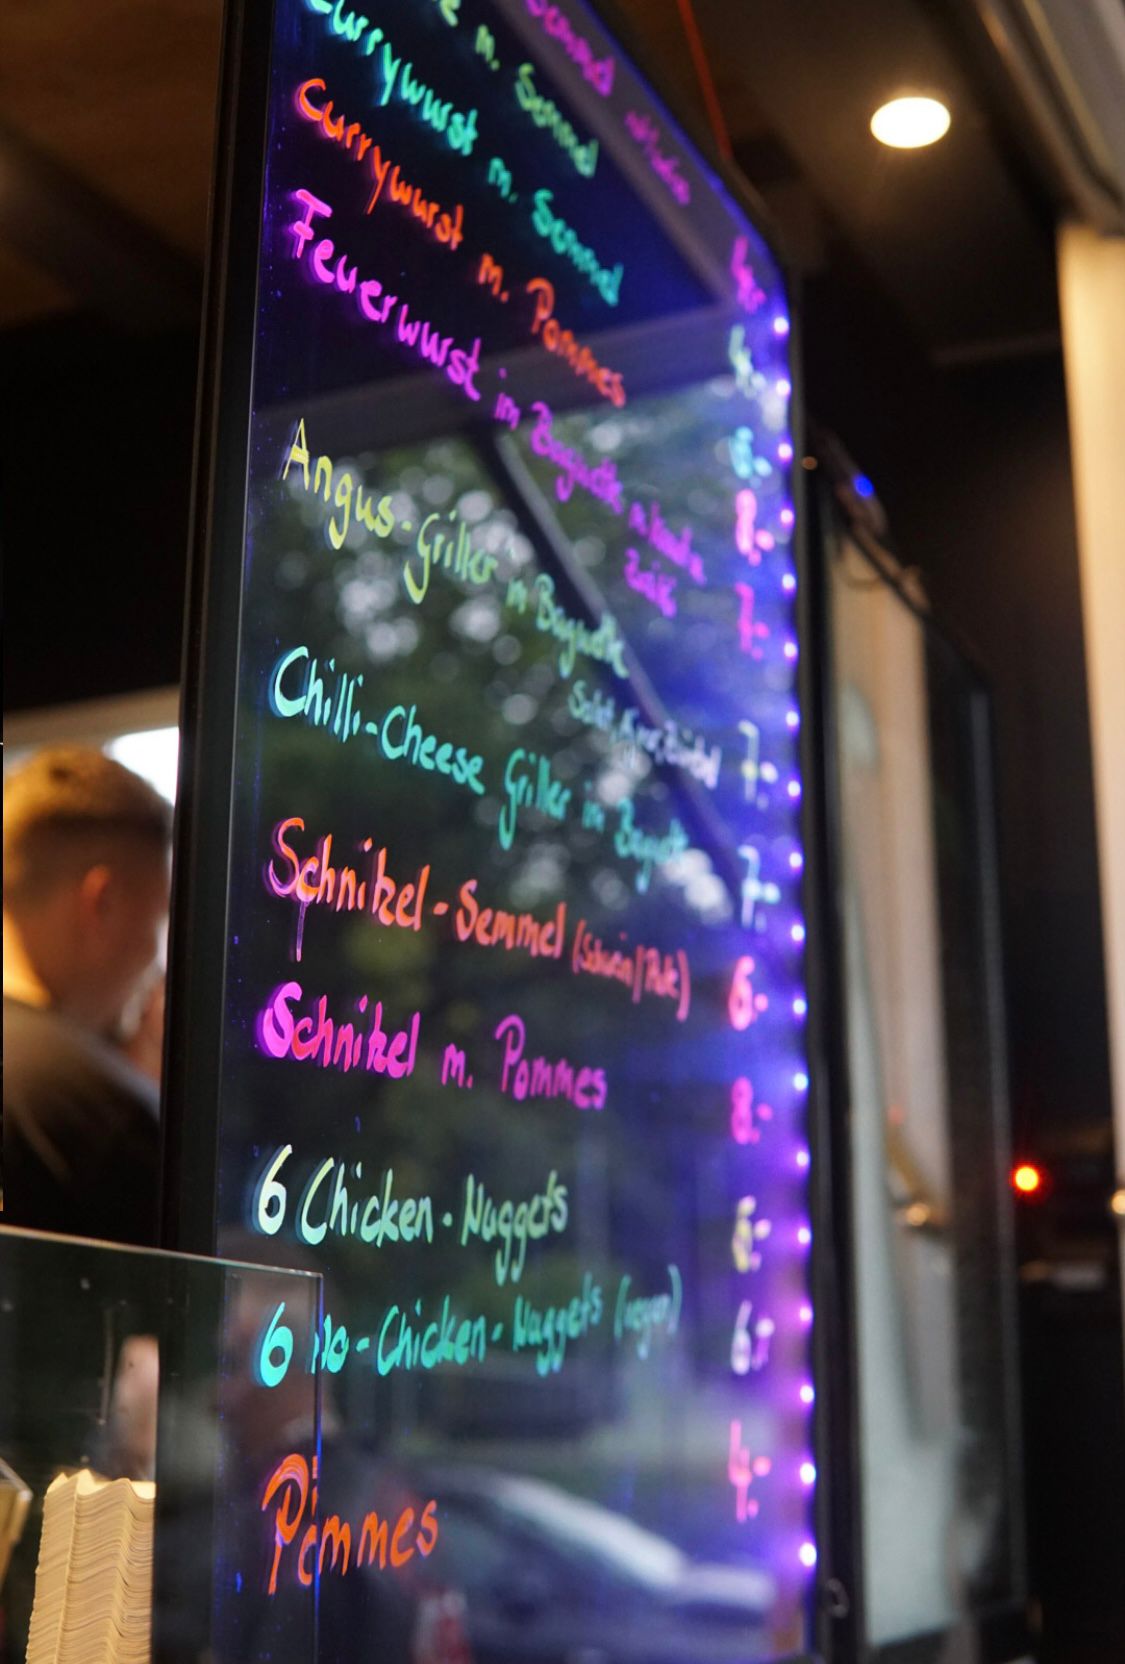 m. Semmel
Currywurst m. Semmel
Currywurst m. Pommes 8.-
Feuerwurst im Baguette 7.-
Angus-Griller im Baguette 7.-
Salat, Käse, Zwiebel
Chilli-Cheese Griller im Baguette 7.-
Schnitzel-Semmel (Schwein/Pute) 6.-
Schnitzel m. Pommes 8.-
6 Chicken-Nuggets 6.-
6 No-Chicken-Nuggets (vegan) 6.-
Pommes 4.-